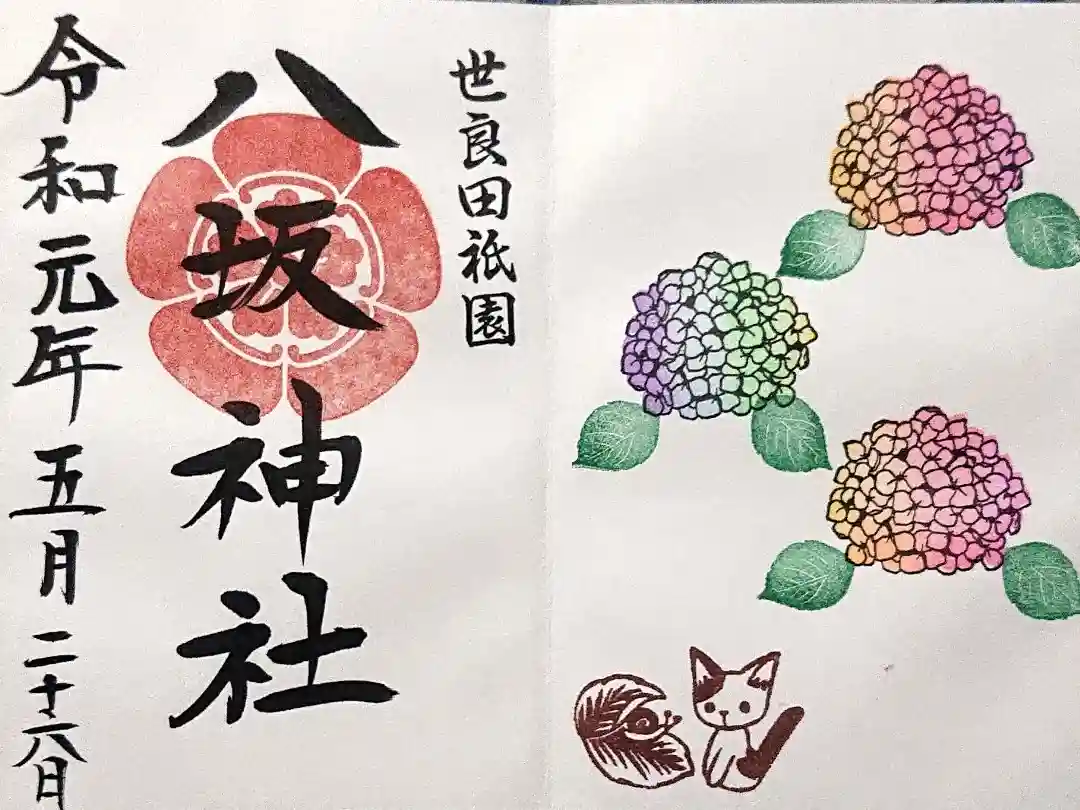 世良田祇園
八坂神社
令和元年五月二十六日